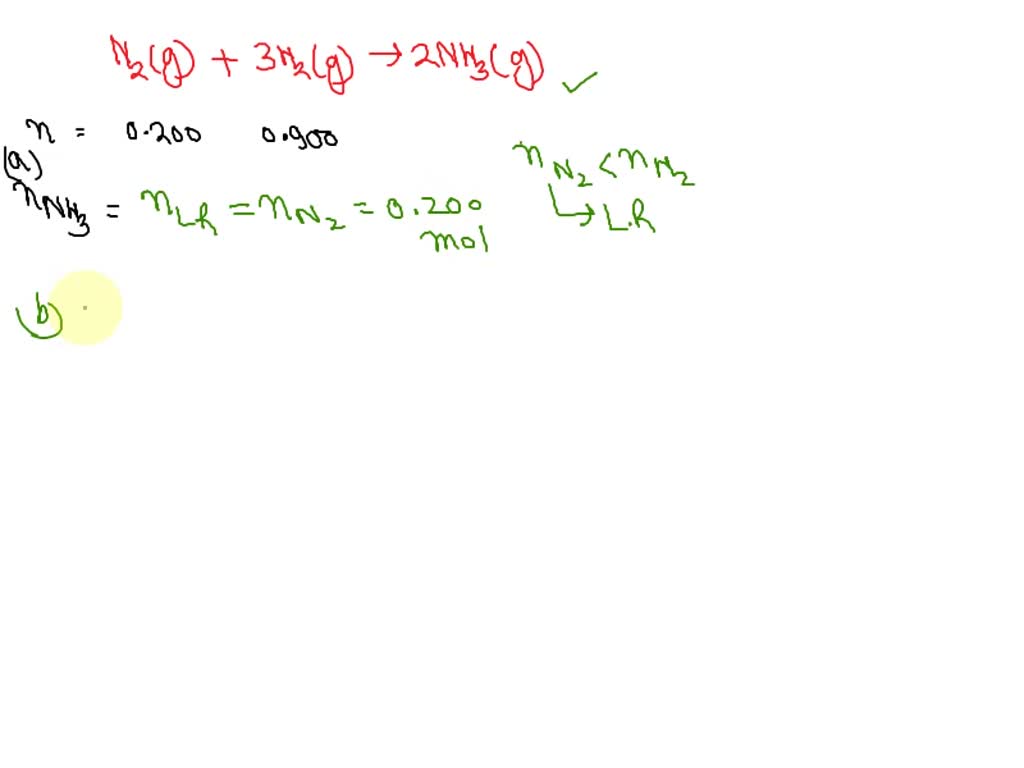 N₂(g) + 3H₂(g) → 2NH₃(g) ✓
n = 0.200 0.900
(a)
nNH₃ = nLR = nN₂ = 0.200 mol
nN₂ < nH₂
→ L.R
b)